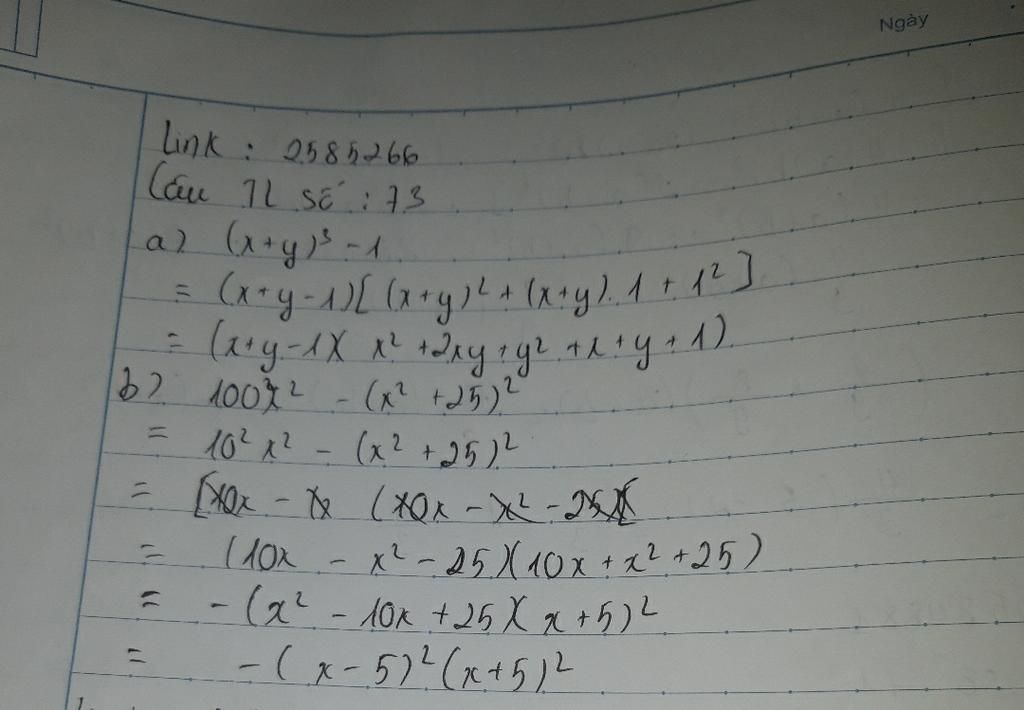 Ngày
Link : 2585266
Câu TL số : 73
a) (x+y)³ - 1
= (x+y-1)[(x+y)² + (x+y).1 + 1²]
= (x+y-1)(x² + 2xy + y² + x + y + 1)
b) 100x² - (x² + 25)²
= 10² x² - (x² + 25)²
= [10x - x (10x - x² - 25)]
= (10x - x² - 25)(10x + x² + 25)
= -(x² - 10x + 25)(x + 5)²
= -(x - 5)²(x + 5)²